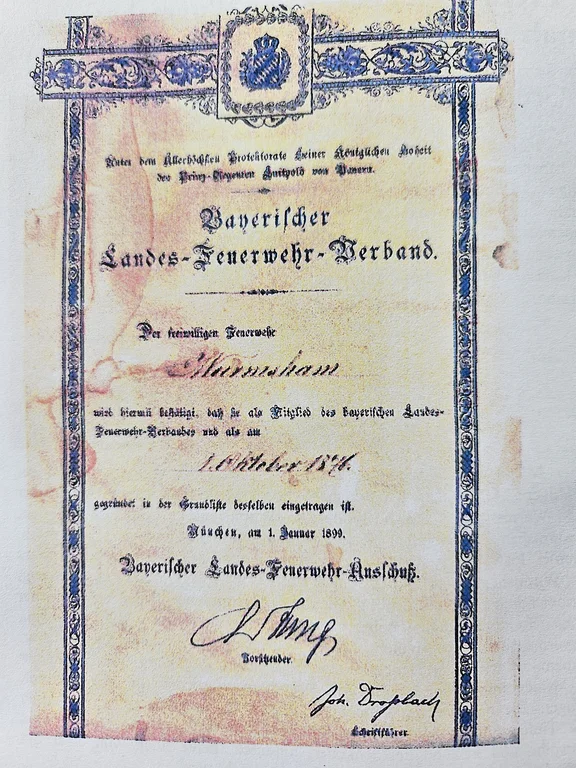 Unter dem Allerhöchsten Protektorate Seiner Königlichen Hoheit
des Prinz-Regenten Luitpold von Bayern.
Bayerischer
Landes-Feuerwehr-Verband.
Der freiwilligen Feuerwehr
Wurmsham
wird hiermit bestätigt, daß sie als Mitglied des bayerischen Landes-
Feuerwehr-Verbandes und als am
1. Oktober 1876.
gegründet in der Grundliste desselben eingetragen ist.
München, am 1. Januar 1899.
Bayerischer Landes-Feuerwehr-Ausschuß.
Vorsitzender
Joh. Droßbach
Schriftführer